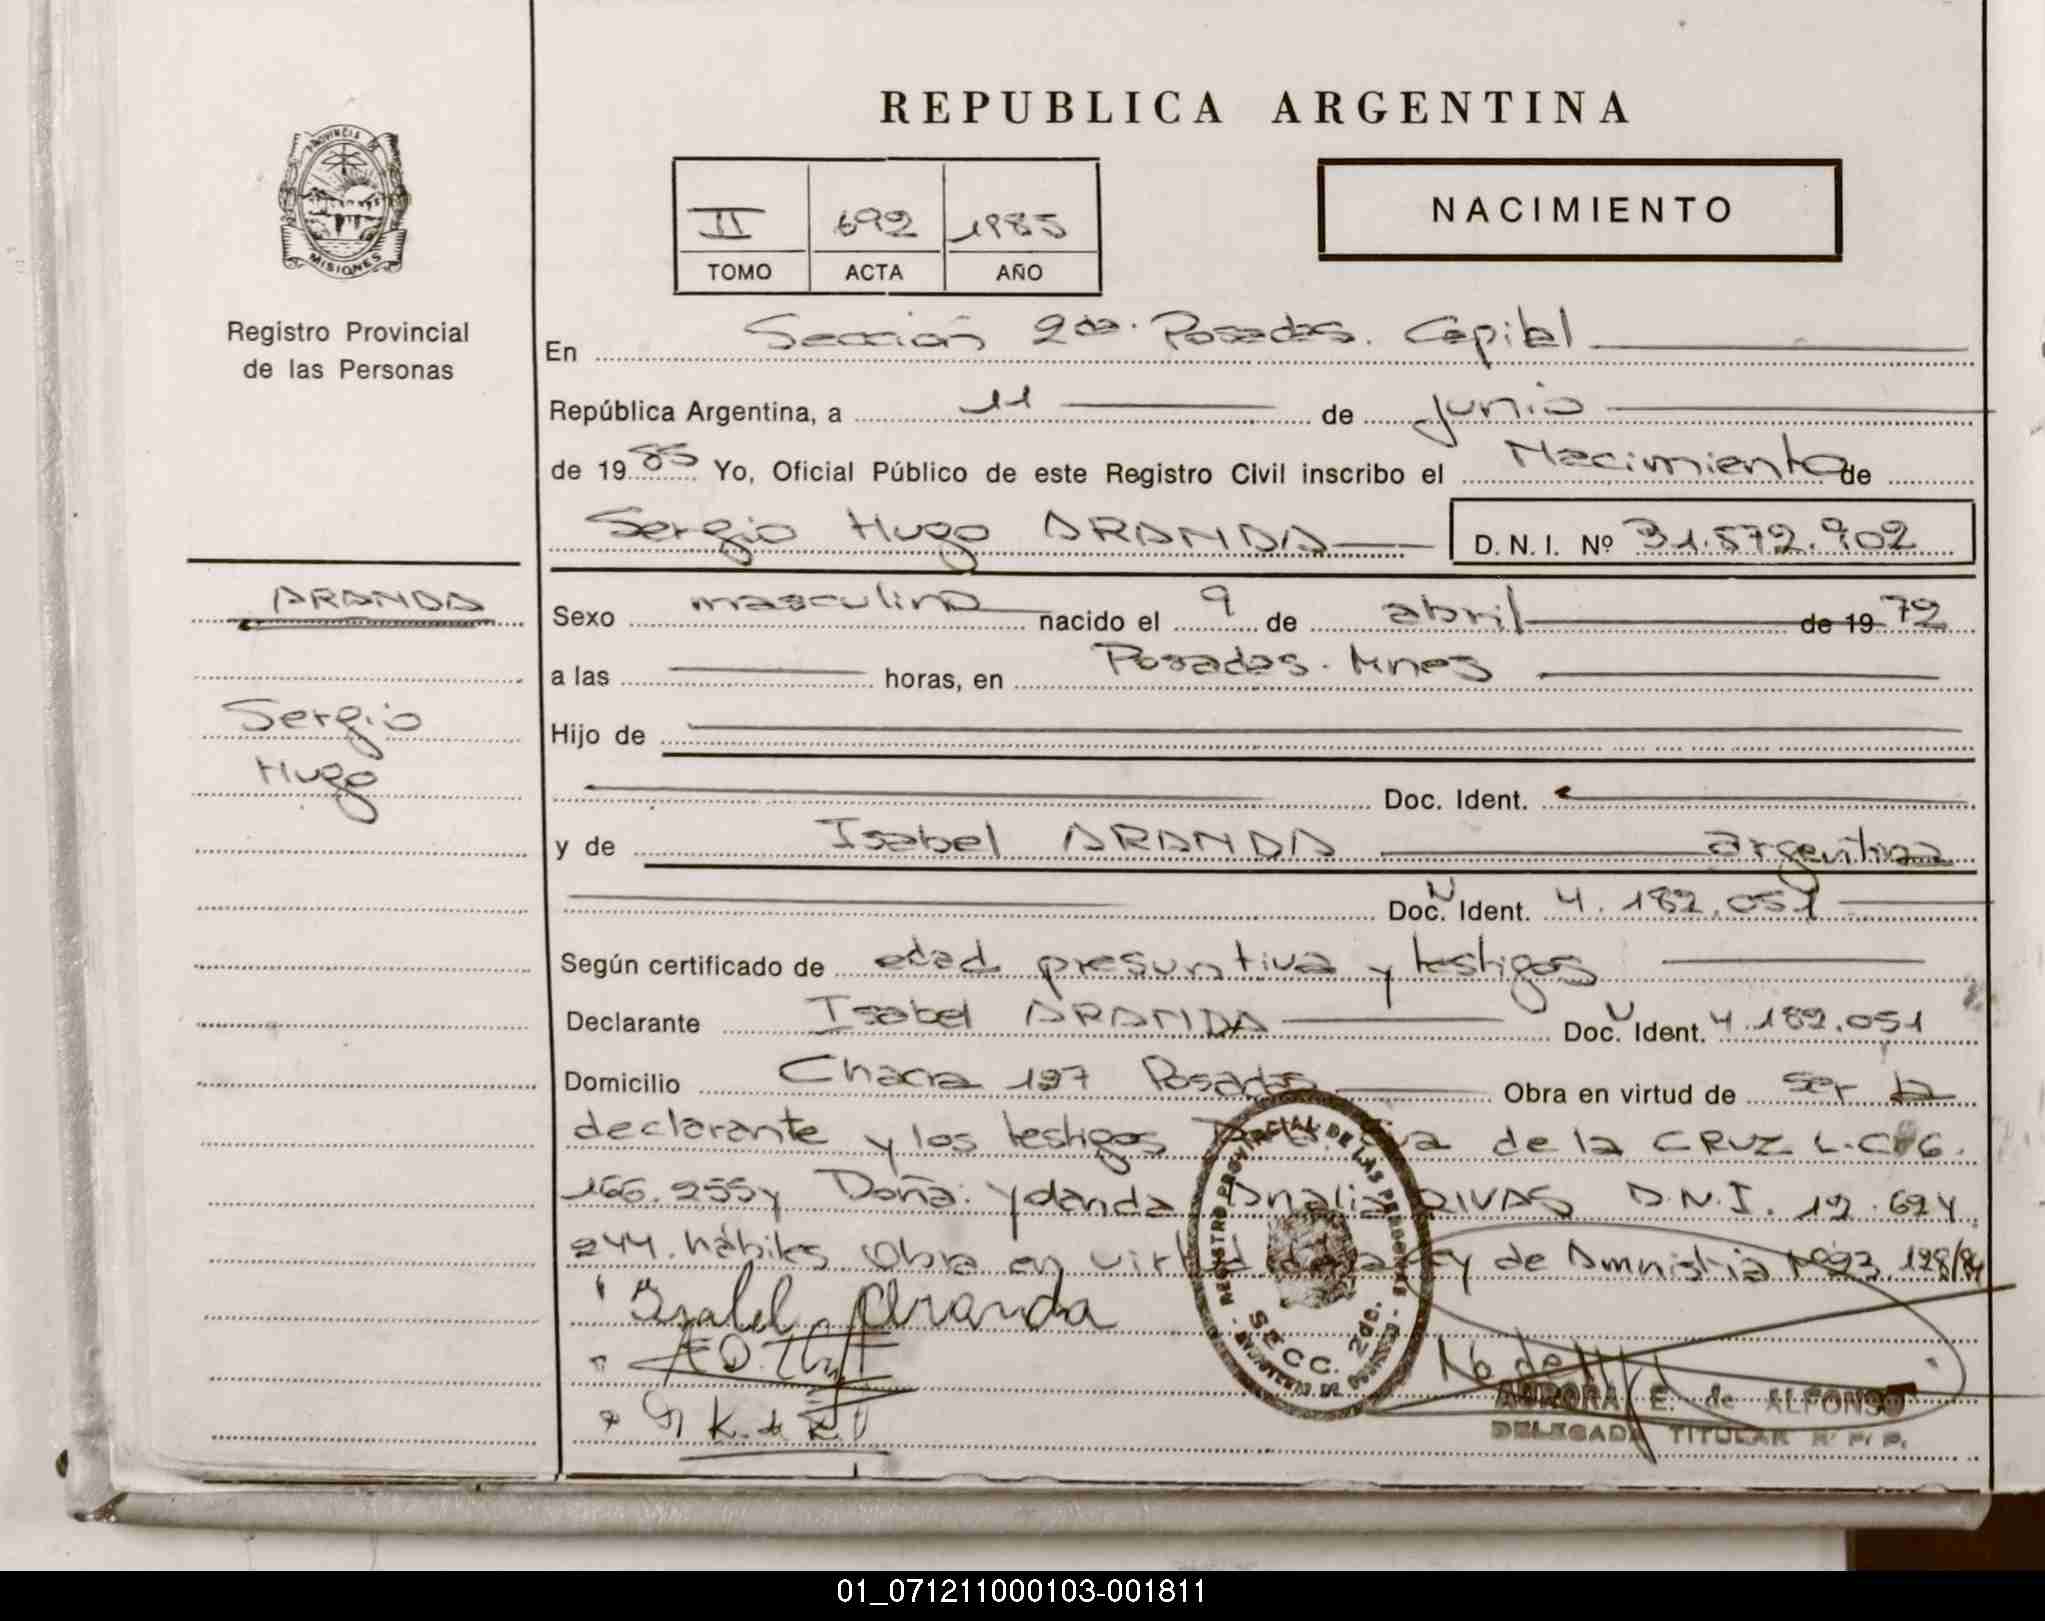 REPUBLICA ARGENTINA
PROVINCIA DE
MISIONES
Registro Provincial
de las Personas
II 692 1985
TOMO ACTA AÑO
NACIMIENTO
En Sección 2da. Posadas. Capital
República Argentina, a 11 de junio
de 1985 Yo, Oficial Público de este Registro Civil inscribo el Nacimiento de
Sergio Hugo ARANDA D.N.I. Nº 31.572.902
ARANDA
Sergio
Hugo
Sexo masculino nacido el 9 de abril de 1972
a las horas, en Posadas. Mnes
Hijo de
Doc. Ident.
y de Isabel ARANDA argentina
Doc. N Ident. 4.182.051
Según certificado de edad presuntiva y testigos
Declarante Isabel ARANDA Doc. Ident. 4.182.051
Domicilio Chacra 197 Posadas Obra en virtud de ser la
declarante y los testigos de la CRUZ L.C. 6.
166.255 y Doña: Yolanda Analia RIVAS D.N.I. 12.624
244. hábiles Obra en virtud de la Ley de Amnistia Nº 23.128/84
Isabel Aranda
REGISTRO PROVINCIAL DE LAS PERSONAS
SECC. 2da.
AURORA E. de ALFONSO
DELEGADA TITULAR R. P. P.
01_071211000103-001811